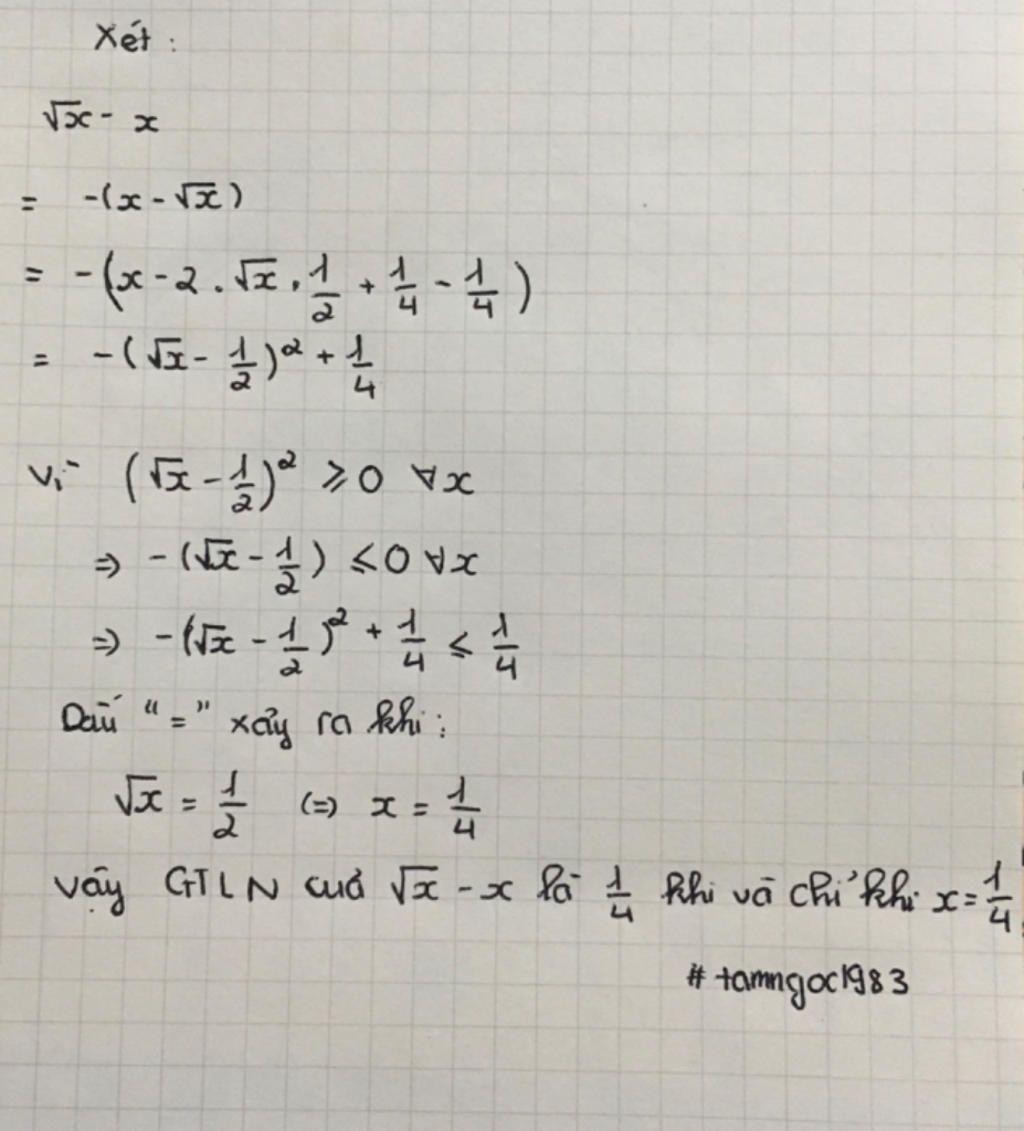 Xét:
√x - x
= -(x - √x)
= -(x - 2 . √x . 1/2 + 1/4 - 1/4)
= -(√x - 1/2)² + 1/4
Vì (√x - 1/2)² ⩾ 0 ∀x
⇒ -(√x - 1/2) ⩽ 0 ∀x
⇒ -(√x - 1/2)² + 1/4 ⩽ 1/4
Dấu "=" xảy ra khi:
√x = 1/2 (=) x = 1/4
Vậy GTLN của √x - x là 1/4 khi và chỉ khi x = 1/4
# tamngoc1983